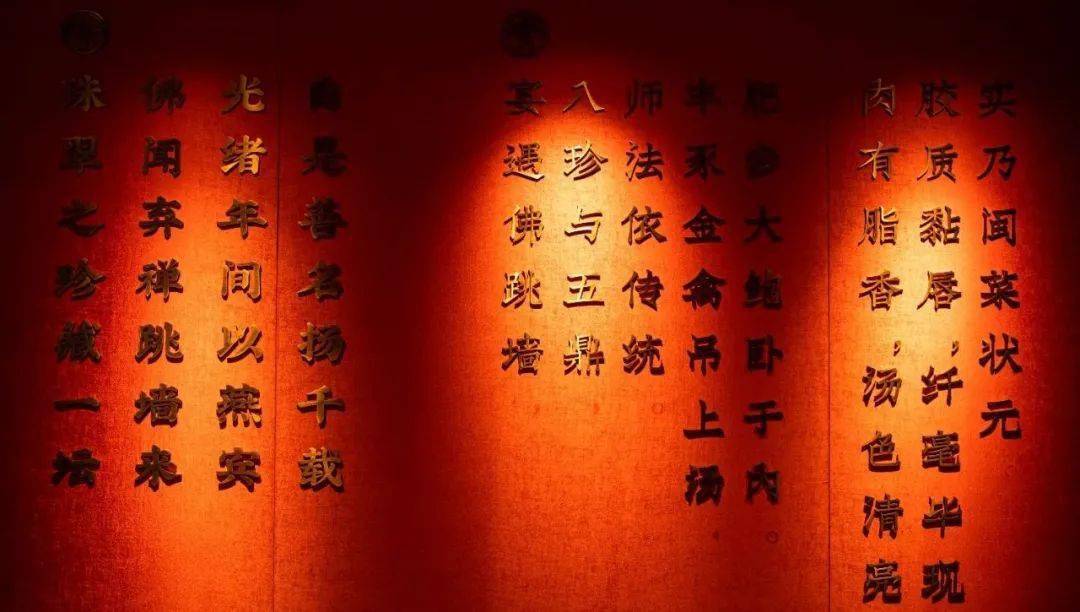 珠翠之珍藏一坛
佛闻弃禅跳墙来
光绪年间以燕宾
自是善名扬千载
宴遇佛跳墙
八珍与五鼎
师法依传统
丰豕金禽吊上汤
肥参大鲍卧于内
肉有脂香，汤色清亮
胶质黏唇，纤毫毕现
实乃闽菜状元